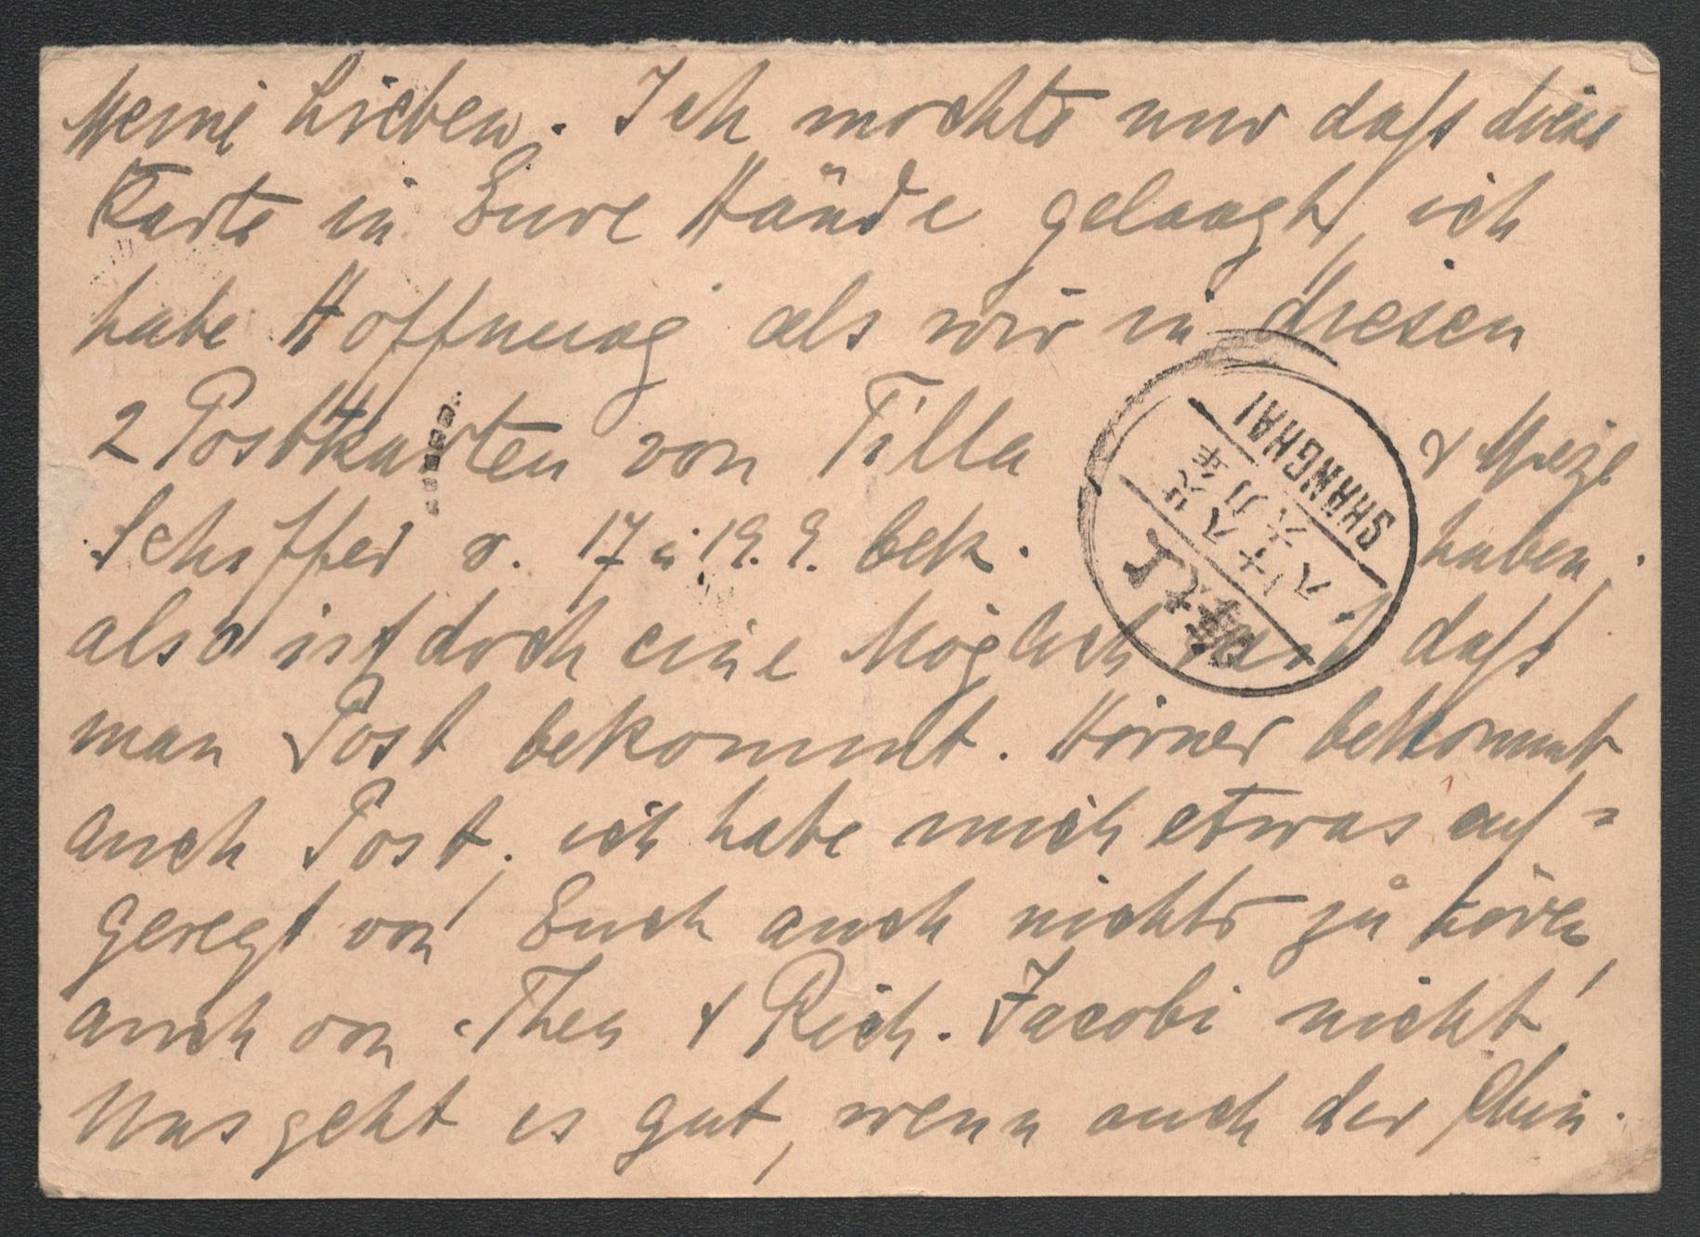 Meine Lieben. Ich mochte nur daſs diese
Karte in Eure Hände gelangt, ich
habe Hoffnung als wir in diesen
2 Postkarten von Tilla & Mizzi
Schiffer v. 17 u 19. 9. bek. haben,
also ist doch eine Möglichkeit daſs
man Post bekommt. Hörner bekommt
auch Post, ich habe mich etwas auf=
geregt von Euch auch nichts zu hören,
auch von Thea & Rich. Jacobi nicht!
Uns geht es gut, wenn auch der Chin.
SHANGHAI
上海